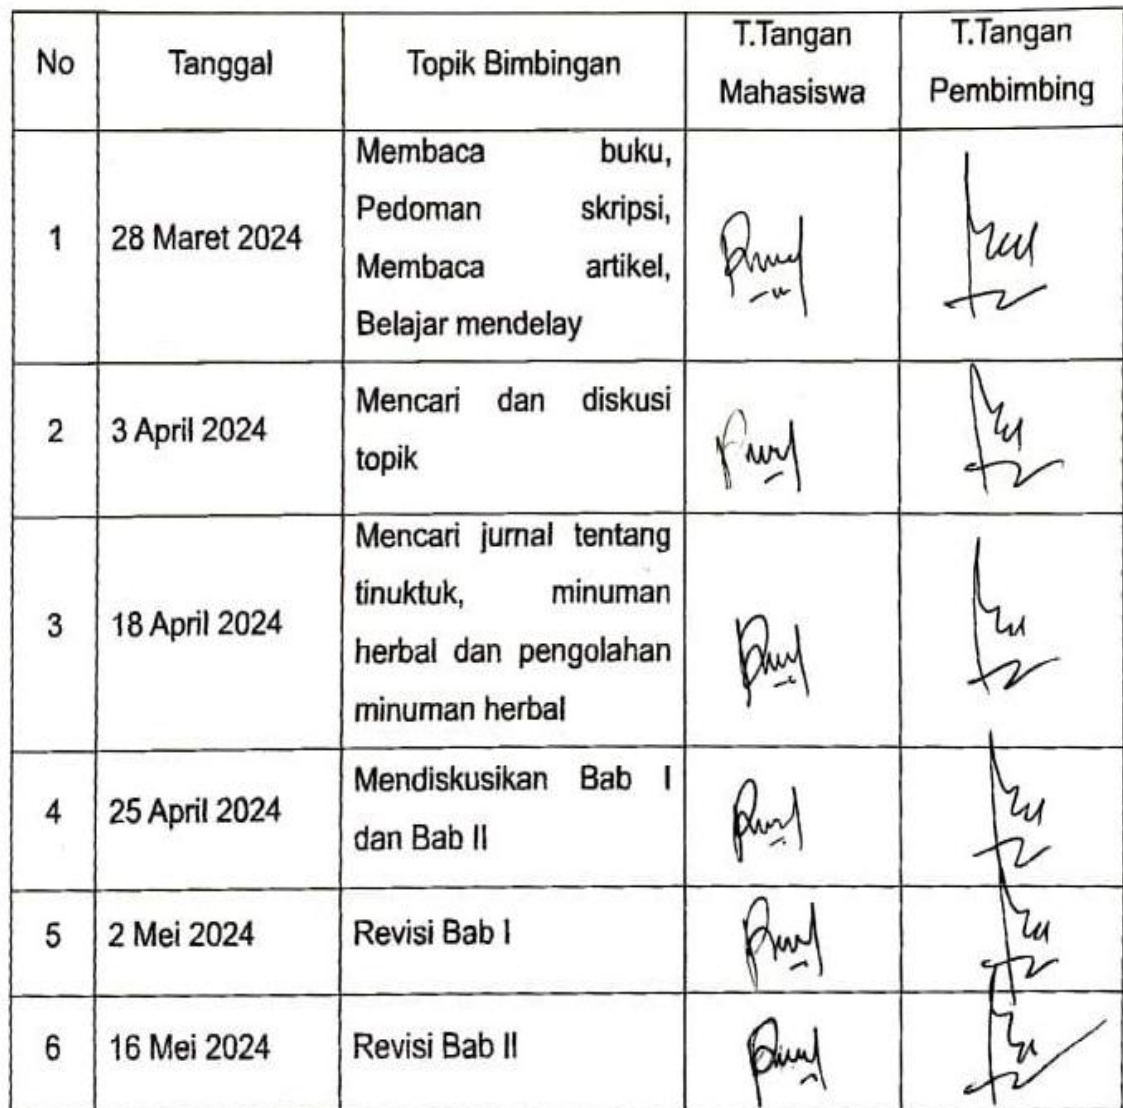 No Tanggal Topik Bimbingan T.Tangan Mahasiswa T.Tangan Pembimbing
1 28 Maret 2024 Membaca buku,
Pedoman skripsi,
Membaca artikel,
Belajar mendelay
2 3 April 2024 Mencari dan diskusi
topik
3 18 April 2024 Mencari jurnal tentang
tinuktuk, minuman
herbal dan pengolahan
minuman herbal
4 25 April 2024 Mendiskusikan Bab I
dan Bab II
5 2 Mei 2024 Revisi Bab I
6 16 Mei 2024 Revisi Bab II